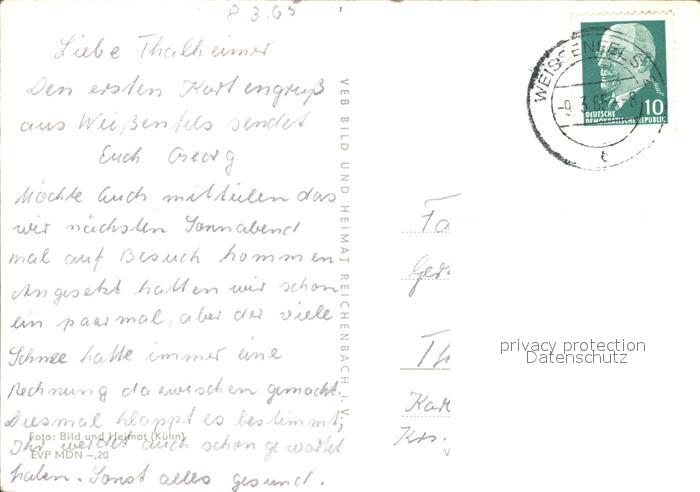 8.3.65
Liebe Thalheimer
Den ersten Kartengruß
aus Weißenfels sendet
Euch Georg
Möchte Euch mitteilen das
wir nächsten Sonnabend
mal auf Besuch kommen
Angesetzt hatten wir schon
ein paar mal, aber der viele
Schnee hatte immer eine
Rechnung dazwischen gemacht.
Diesmal klappt es bestimmt,
Ihr werdet auch schon gewartet
haben. Sonst alles gesund.
Foto: Bild und Heimat (Kühn)
EVP MDN –,20
VEB BILD UND HEIMAT REICHENBACH i. V.
WEISSENFELS
-9.3.65-8
t
10
DEUTSCHE
DEMOKRATISCHE REPUBLIK
Fa
Th
Kar
Krs.
V
privacy protection
Datenschutz